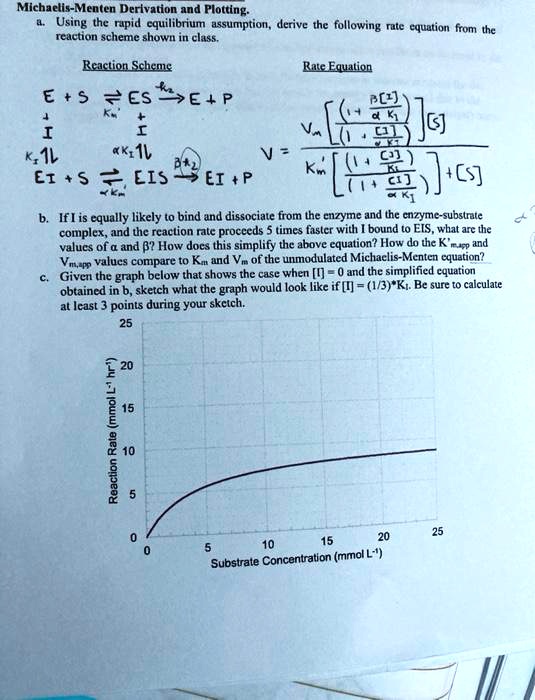 Michaelis-Menten Derivation and Plotting.
a. Using the rapid equilibrium assumption, derive the following rate equation from the
reaction scheme shown in class.
Reaction Scheme
Rate Equation
E + S ⇌ ES →k₂ E + P
Km'
+ +
I I
K_I ⇅ αK_I ⇅
EI + S ⇌ EIS →βk₂ EI + P
αKm'
V = Vm[(1 + β[I]/αK_I)/(1 + [I]/αK_I)][S]
Km'[(1 + [I]/K_I)/(1 + [I]/αK_I)] + [S]
b. If I is equally likely to bind and dissociate from the enzyme and the enzyme-substrate
complex, and the reaction rate proceeds 5 times faster with I bound to EIS, what are the
values of α and β? How does this simplify the above equation? How do the K'm,app and
Vm,app values compare to Km and Vm of the unmodulated Michaelis-Menten equation?
c. Given the graph below that shows the case when [I] = 0 and the simplified equation
obtained in b, sketch what the graph would look like if [I] = (1/3)*KI. Be sure to calculate
at least 3 points during your sketch.
25
20
15
10
5
0
Reaction Rate (mmol L⁻¹ hr⁻¹)
0 5 10 15 20 25
Substrate Concentration (mmol L⁻¹)